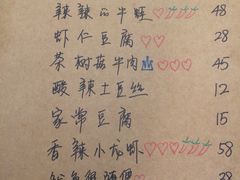 辣辣的牛蛙 48
虾仁豆腐 28
茶树菇牛肉 45
酸辣土豆丝 12
家常豆腐 15
香辣小龙虾 58
28